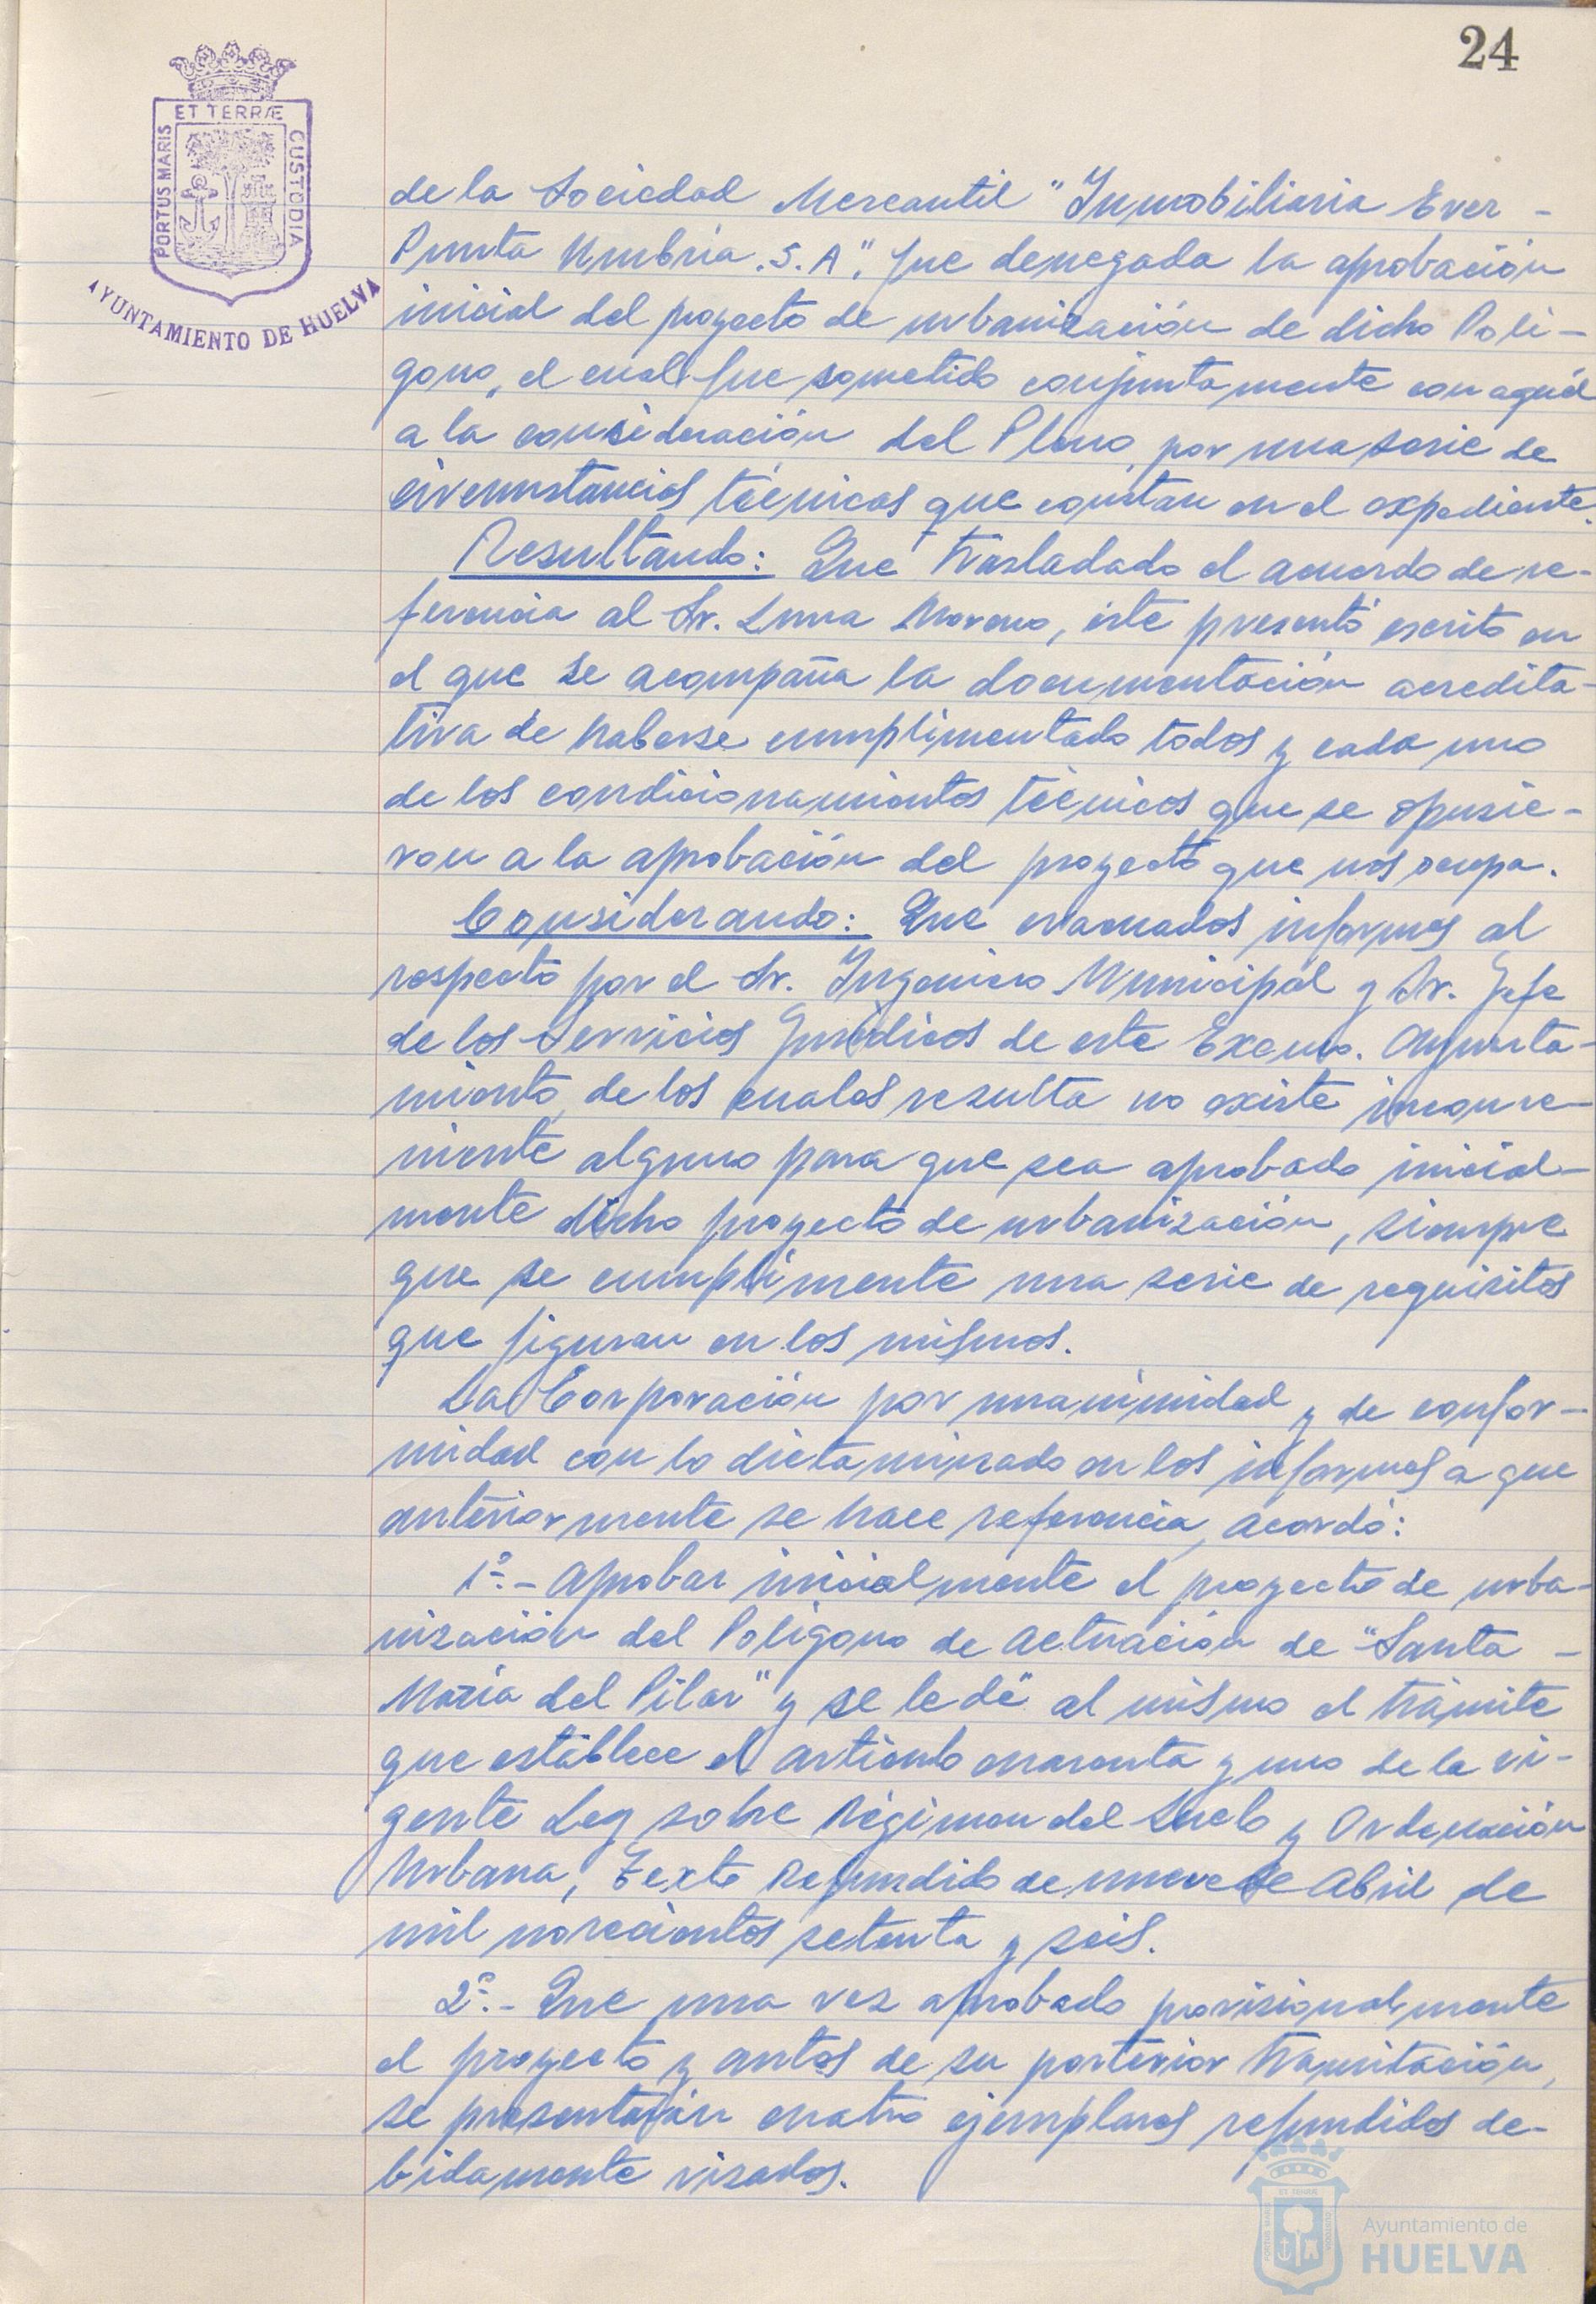 24
ET TERRÆ
PORTUS MARIS
CUSTODIA
AYUNTAMIENTO DE HUELVA
de la Sociedad Mercantil "Inmobiliaria Ever -
Punta Umbría.S.A", fue denegada la aprobación
inicial del proyecto de urbanización de dicho Poli-
gono, el cual fue sometido conjuntamente con aquél
a la consideración del Pleno, por una serie de
circunstancias técnicas que constan en el expediente.
Resultando: Que trasladado el acuerdo de re-
ferencia al Sr. Luna Moreno, éste presentó escrito en
el que se acompaña la documentación acredita-
tiva de haberse cumplimentado todos y cada uno
de los condicionamientos técnicos que se opusie-
ron a la aprobación del proyecto que nos ocupa.
Considerando: Que evacuados informes al
respecto por el Sr. Ingeniero Municipal y Sr. Jefe
de los Servicios Jurídicos de este Excmo. Ayunta-
miento, de los cuales resulta no existe inconve-
niente alguno para que sea aprobado inicial-
mente dicho proyecto de urbanización, siempre
que se cumplimente una serie de requisitos
que figuran en los mismos.
La Corporación por unanimidad y de confor-
midad con lo dictaminado en los informes a que
anteriormente se hace referencia, acordó:
1º.- Aprobar inicialmente el proyecto de urba-
nización del Polígono de Actuación de "Santa -
María del Pilar" y se le dé al mismo el trámite
que establece el artículo cuarenta y uno de la vi-
gente Ley sobre Régimen del Suelo y Ordenación
Urbana, Texto Refundido de nueve de Abril de
mil novecientos setenta y seis.
2º.- Que una vez aprobado provisionalmente
el proyecto y antes de su posterior tramitación,
se presentarán cuatro ejemplares refundidos de-
bidamente visados.
Ayuntamiento de
HUELVA